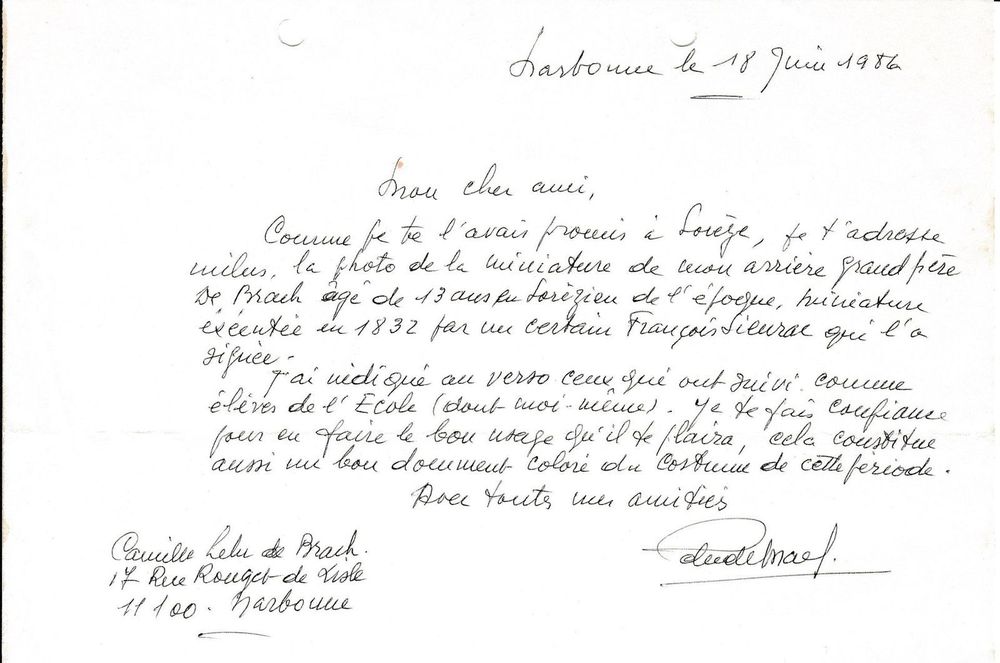 Narbonne le 18 Juin 1986
Mon cher ami,
Comme je te l'avais promis à Sorèze, je t'adresse
inclus, la photo de la miniature de mon arrière grand père
De Brach âgé de 13 ans en Sorèzien de l'époque, miniature
éxécutée en 1832 par un certain François Sieurac qui l'a
signée.
J'ai indiqué au verso ceux qui ont suivi comme
élèves de l'Ecole (dont moi-même). Je te fais confiance
pour en faire le bon usage qu'il te plaira, cela constitue
aussi un bon document coloré du costume de cette période.
Avec toutes mes amitiés
Camille de Brach.
17 Rue Rouget de Lisle
11100. Narbonne